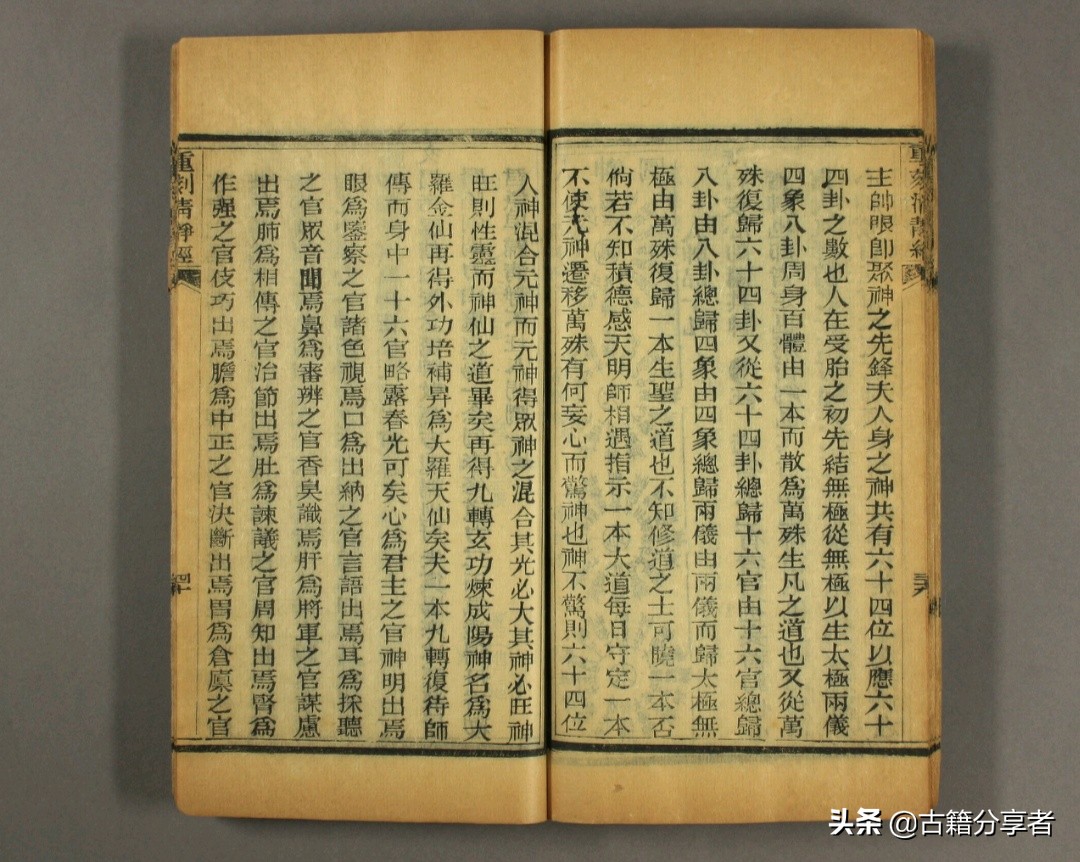 主帥眼卽聚神之先鋒夫人身之神共有六十四位以應六十
四卦之數也人在受胎之初先結無極從無極以生太極兩儀
四象八卦周身百體由一本而散爲萬殊生凡之道也又從萬
殊復歸六十四卦又從六十四卦總歸十六官由十六官總歸
八卦由八卦總歸四象由四象總歸兩儀由兩儀而歸太極無
極由萬殊復歸一本生聖之道也不知修道之士可曉一本否
倘若不知積德感天明師相遇指示一本大道每日守定一本
不使元神遷移萬殊有何妄心而驚神也神不驚則六十四位
人神混合元神而元神得眾神之混合其光必大其神必旺神
旺則性靈而神仙之道畢矣再得九轉玄功煉成陽神名爲大
羅金仙再得外功培補昇爲大羅天仙矣夫一本九轉復待師
傳而身中一十六官略露春光可矣心爲君主之官神明出焉
眼爲鑒察之官諸色視焉口爲出納之官言語出焉耳爲採聽
之官眾音聞焉鼻爲審辨之官香臭識焉肝爲將軍之官謀慮
出焉肺爲相傳之官治節出焉肚爲諫議之官周知出焉腎爲
作强之官伎巧出焉膽爲中正之官決斷出焉胃爲倉廪之官
重刻清靜經
重刻清靜經
頭条 @古籍分享者